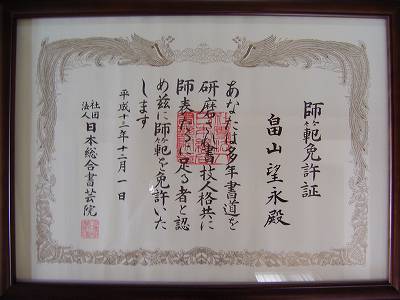 師範免許証
畠山望永殿
あなたは多年書道を
研磨され書技人格共に
師表たるに足る者と認
め茲に師範を免許いた
します
平成十三年十二月一日
社団法人日本総合書芸院